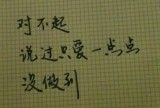 对不起
说过只要一点点
没做到